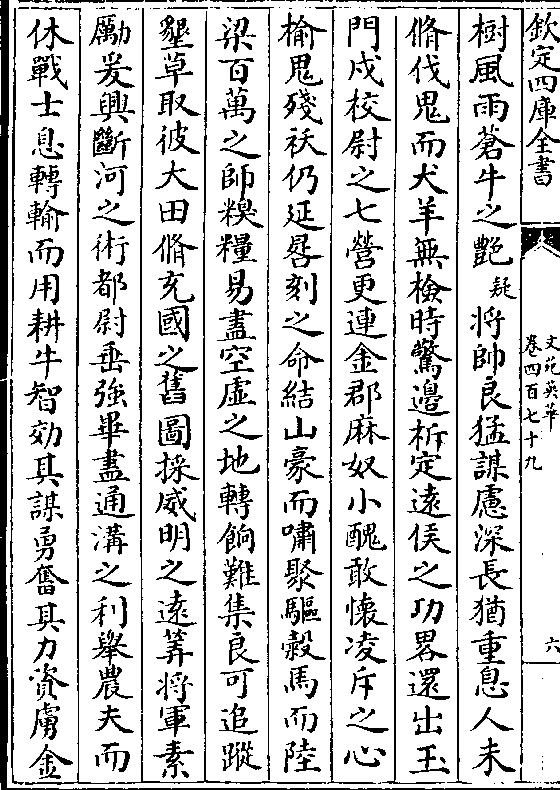 欽定四庫全書
文苑英華
卷四百七十九
六
樹風雨蒼牛之艷疑將帥良猛謀慮深長猶重息人未
脩伐鬼而犬羊無檢時驚邊柝定遠侯之功畧還出玉
門戍校尉之七營更連金郡麻奴小醜敢懷凌斥之心
榆鬼殘祅仍延晷刻之命結山豪而嘯聚驅穀馬而陸
梁百萬之師糗糧易盡空虛之地轉餉難集良可追蹤
墾草取彼大田脩充國之舊圖採威明之遠筭將軍素
勵爰興斷河之術都尉垂強畢盡通溝之利舉農夫而
休戰士息轉輸而用耕牛智効其謀勇奮其力資虜金